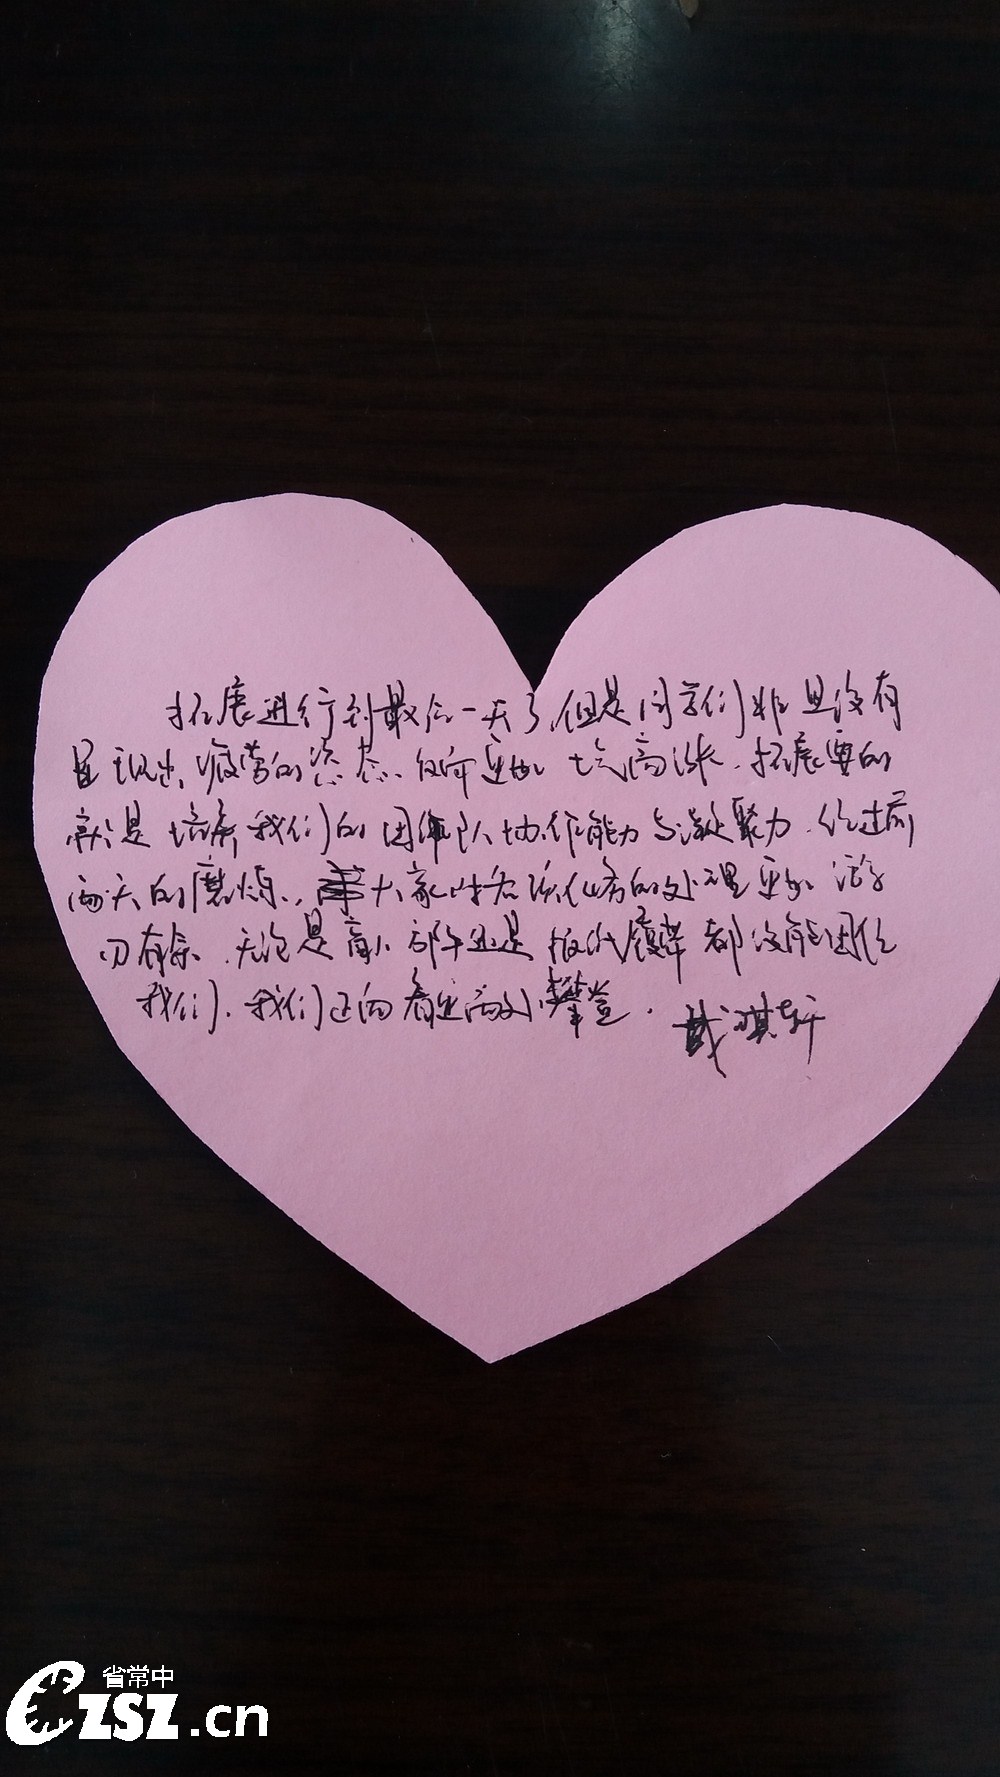 拓展进行到最后一天了,但是同学们非但没有
显现出疲劳的姿态、反而更加士气高涨.拓展要的
就是培养我们的团队协作能力与凝聚力.经过前
两天的磨炼,大家对各项任务的处理更加游
刃有余.无论是还是都没能困住
我们.我们正向着更高处攀登.
戴琪轩
省常中
CZSZ.cn